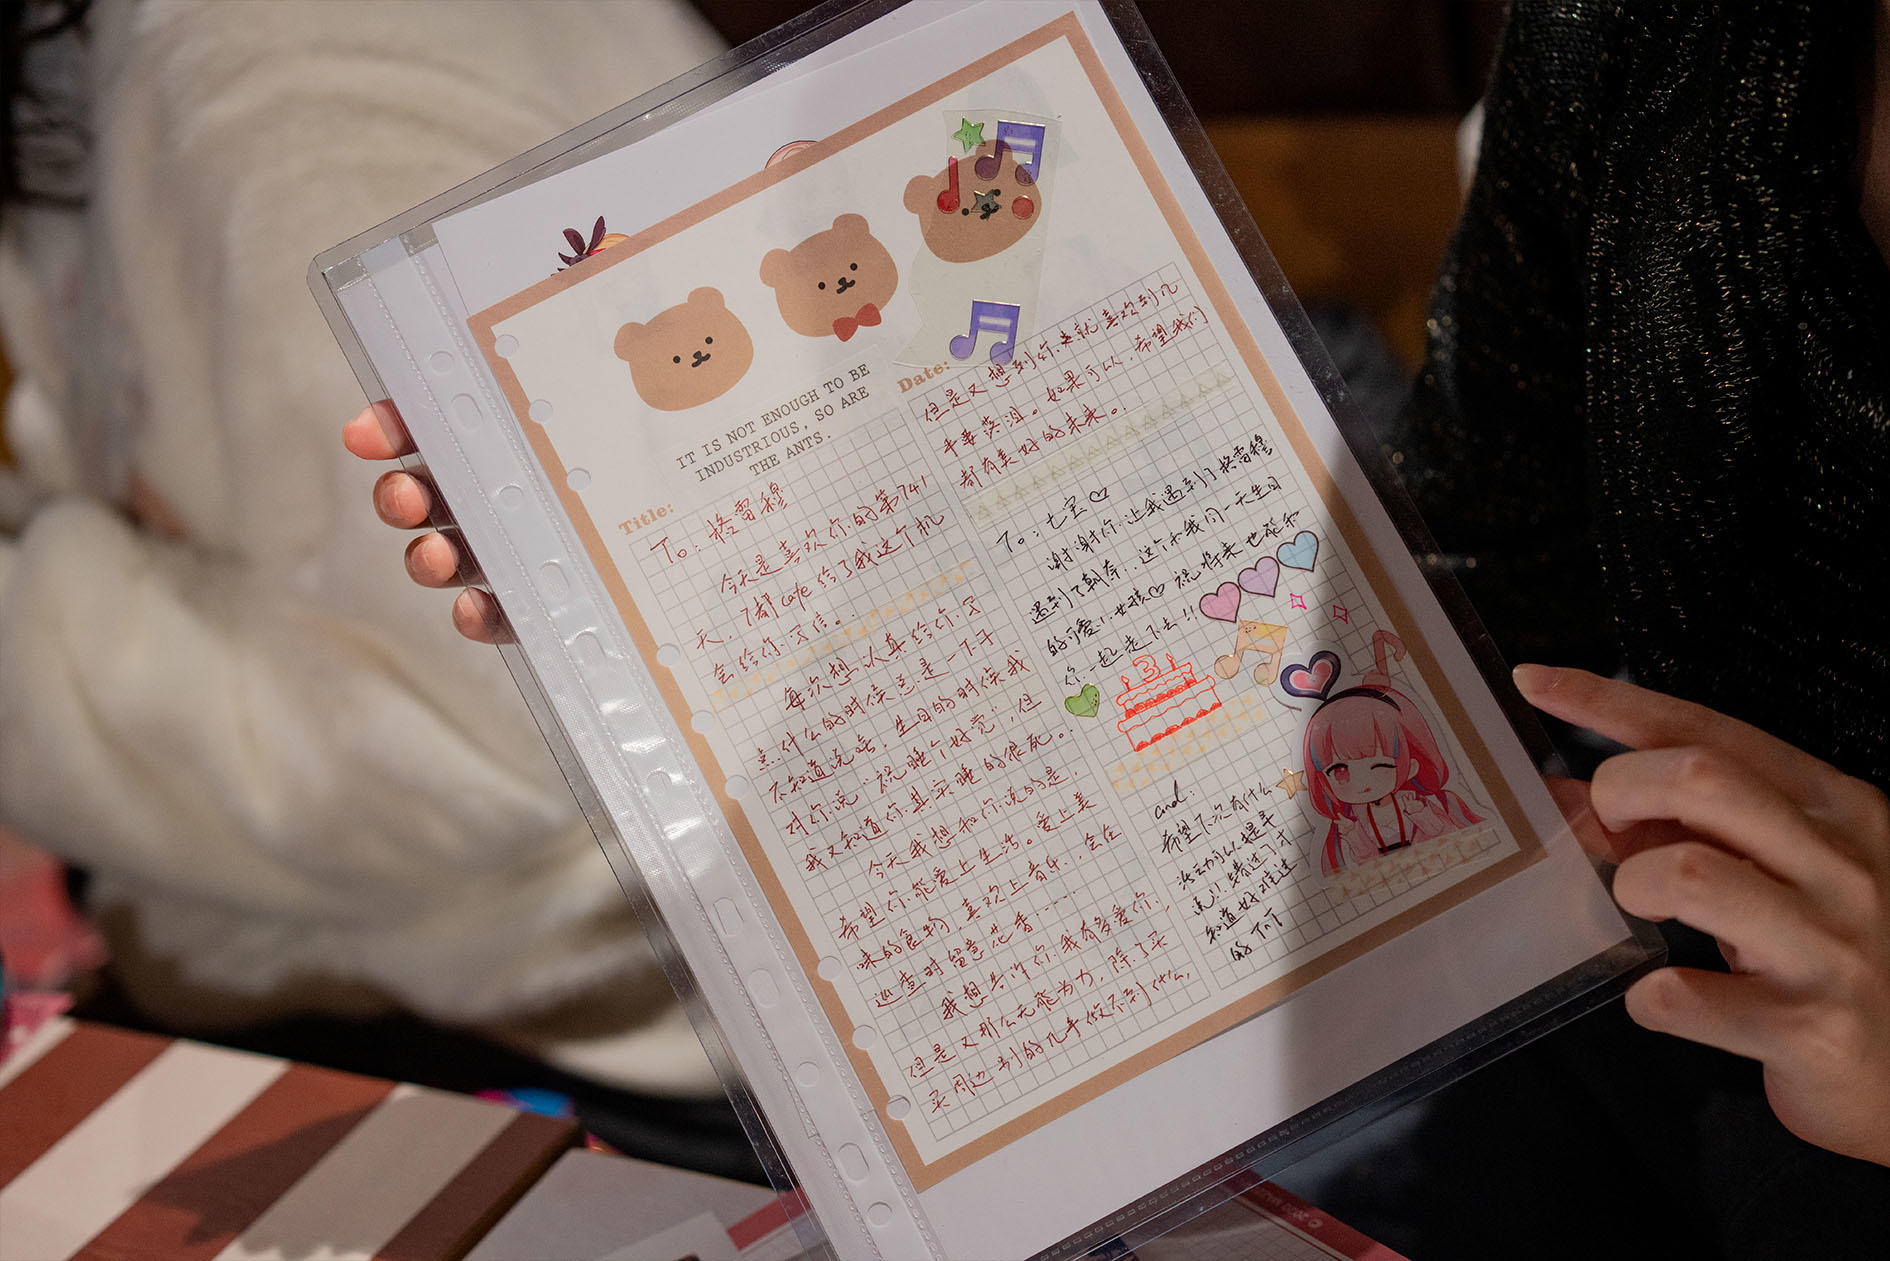 IT IS NOT ENOUGH TO BE
INDUSTRIOUS, SO ARE
THE ANTS.
Title:
To: 格雷穆
今天是喜欢你的第741
天，7都cafe给了我这个机
会给你写信。
每次想认真给你写
点什么的时候总是一下子
不知道说啥，生日的时候我
对你说“祝睡个好觉”，但
我又知道你其实睡的很死。
今天我想和你说的是，
希望你能爱上生活。爱上美
味的食物，喜欢上音乐，会在
巡查时留意花香……
我想告诉你我有多爱你，
但是又那么无能为力，除了买
买周边别的几乎做不到什么，
Date:
但是又想到你来就喜欢到几
乎要落泪。如果可以，希望我们
都有美好的未来。
To: 七宝♡
谢谢你让我遇到了格雷穆
遇到了朝奈，这个和我同一天生日
的可爱小女孩♡祝将来也能和
你一起走下去!!
3
and:
希望下次有什么
活动可以提早
说!!错过了才
知道好难过
的 TnT
2020 MA